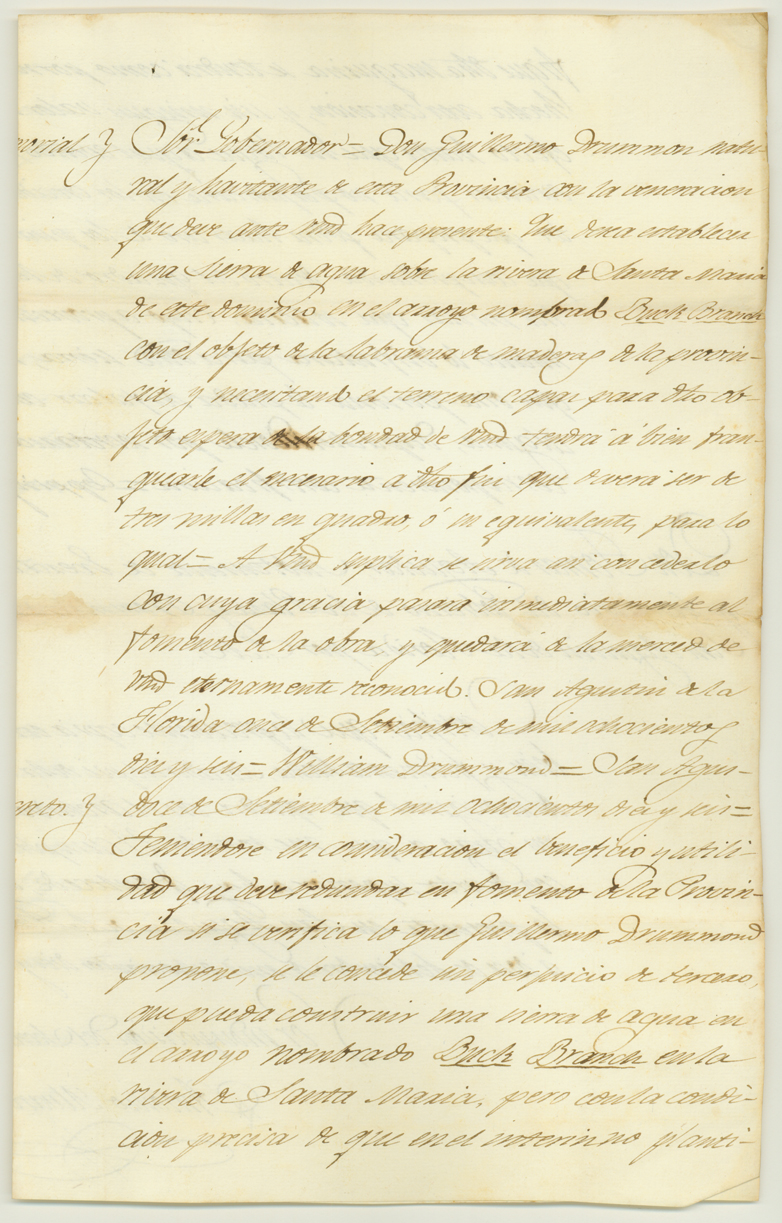 morial } Sor. Gobernador = Don Guillermo Drummon natu-
ral y havitante de esta Provincia con la veneracion
que deve ante Vmd hace presente: Que desea establecer
una Sierra de agua sobre la rivera de Santa Maria
de este dominio en el arroyo nombrado Buck Branch
con el objeto de la labranza de maderas de la provin-
cia, y necesitando el terreno capaz para dho ob-
jeto espera de la bondad de Vmd tendrá á bien fran-
quearle el necesario a dho fin que deverá ser de
tres millas en quadro, ó su equivalente, para lo
qual = A Vmd suplica se sirva asi concederlo
con cuya gracia pasará inmediatamente al
fomento de la obra, y quedará de la merced de
Vmd eternamente reconocido. San Agustin de la
Florida once de Setiembre de mil ochocientos
diez y seis = William Drummond = San Agus-
creto. } doce de Setiembre de mil ochocientos diez y seis =
Teniendose en consideracion el beneficio y utili-
dad que deve redundar en fomento de la Provin-
cia si se verifica lo que Guillermo Drummond
propone, se le concede sin perjuicio de tercero,
que pueda construir una sierra de agua en
el arroyo nombrado Buck Branch en la
rivera de Santa Maria, pero con la condi-
cion precisa de que en el interin no planti-